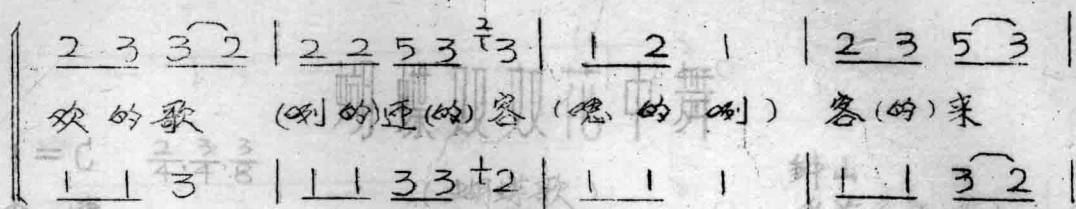 2 3 3 2 | 2 2 5 3 3 | 1 2 1 | 2 3 5 3 |
欢 的 歌 (咧 的) 迎 (的) 客 ( 的 咧 ) 客 (的) 来
1 1 3 | 1 1 3 3 2 | 1 1 1 | 1 1 3 2 |